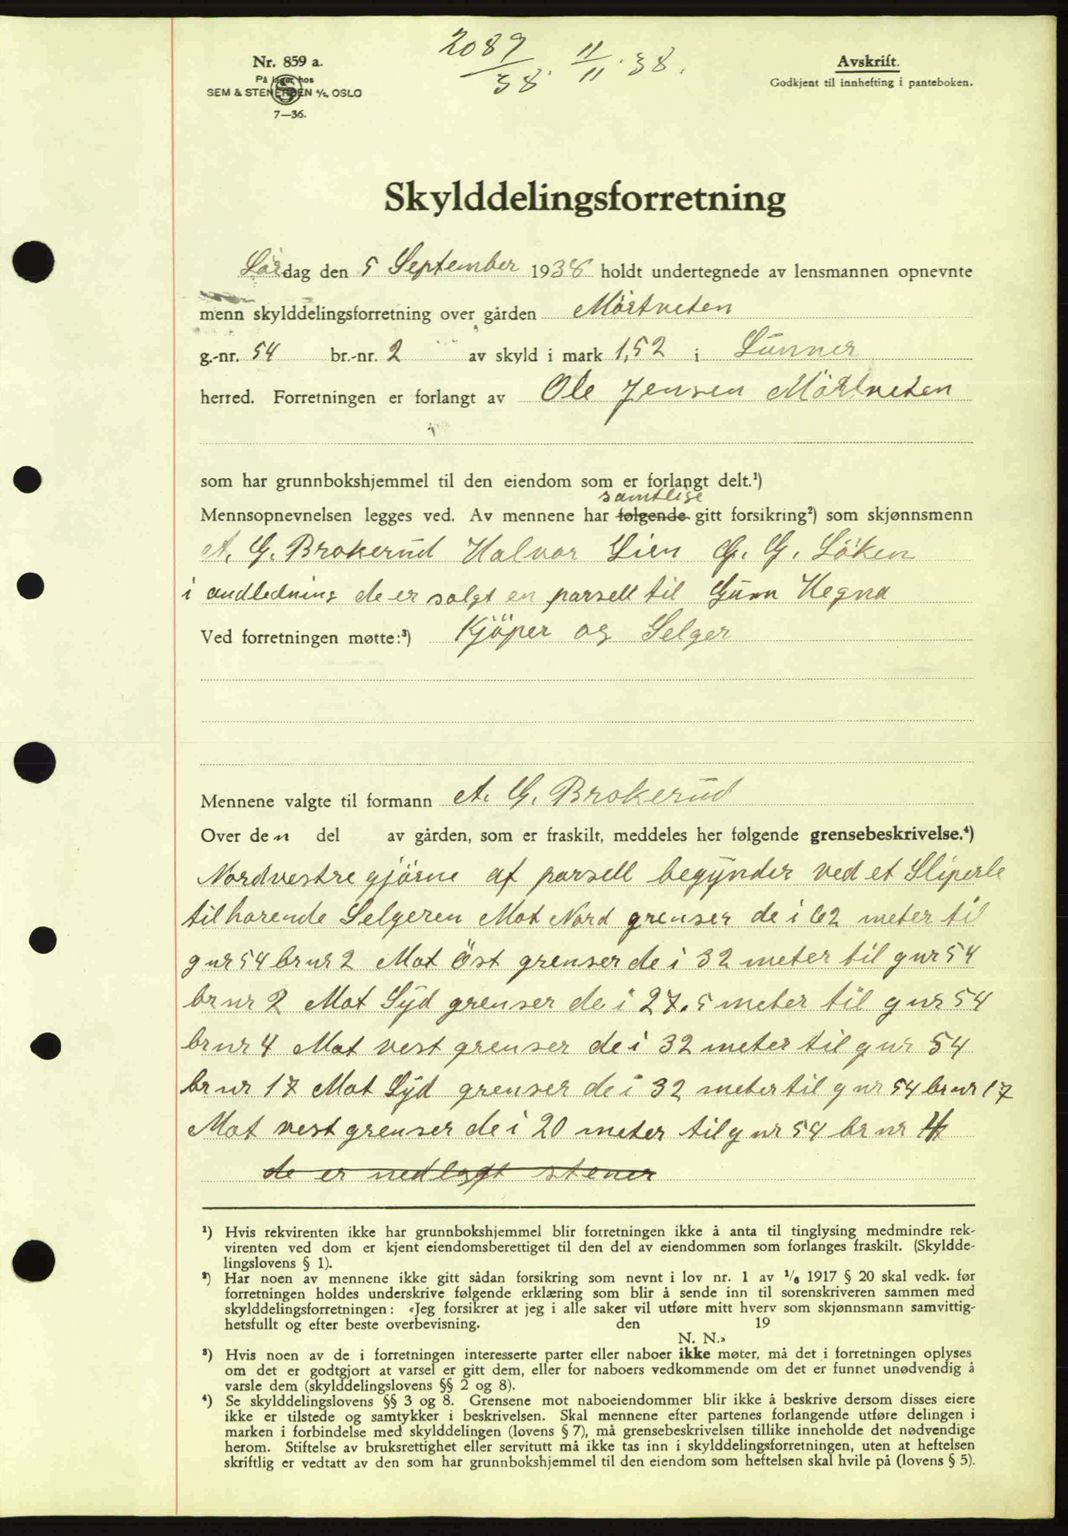 2089/38. 11/11.38.
Nr. 859 a.
På lager hos
SEM & STENERSEN A/S, OSLO
7—36.
Avskrift.
Godkjent til innhefting i panteboken.
Skylddelingsforretning
Lørdag den 5 September 1938 holdt undertegnede av lensmannen opnevnte
menn skylddelingsforretning over gården Mörtveten
g.-nr. 54 br.-nr. 2 av skyld i mark 1,52 i Lunner
herred. Forretningen er forlangt av Ole Jensen Mörtveten
som har grunnbokshjemmel til den eiendom som er forlangt delt.¹)
samtlige
Mennsopnevnelsen legges ved. Av mennene har følgende gitt forsikring²) som skjønnsmenn
A. G. Brokerud Halvor Lien G. G. Löken
i andledning de er solgt en parsell til Gunn Hegna
Ved forretningen møtte:³) Kjöper og Selger
Mennene valgte til formann A. G. Brokerud
Over den del av gården, som er fraskilt, meddeles her følgende grensebeskrivelse.⁴)
Nordvestre gjörne af parsell begynder ved et Sliperle
tilhorende Selgeren Mot Nord grenser de i 62 meter til
gnr 54 brnr 2 Mot Öst grenser de i 32 meter til gnr 54
brnr 2 Mot Syd grenser de i 27.5 meter til gnr 54
brnr 4 Mot vest grenser de i 32 meter til gnr 54
brnr 17 Mot Syd grenser de i 32 meter til gnr 54 brnr 17
Mot vest grenser de i 20 meter til gnr 54 brnr 4
de er nedlagt stener
¹) Hvis rekvirenten ikke har grunnbokshjemmel blir forretningen ikke å anta til tinglysing medmindre rek-
virenten ved dom er kjent eiendomsberettiget til den del av eiendommen som forlanges fraskilt. (Skyldde-
lingslovens § 1).
²) Har noen av mennene ikke gitt sådan forsikring som nevnt i lov nr. 1 av ¹/₆ 1917 § 20 skal vedk. før
forretningen holdes underskrive følgende erklæring som blir å sende inn til sorenskriveren sammen med
skylddelingsforretningen: «Jeg forsikrer at jeg i alle saker vil utføre mitt hverv som skjønnsmann samvittig-
hetsfullt og efter beste overbevisning. den 19
N. N.»
³) Hvis noen av de i forretningen interesserte parter eller naboer ikke møter, må det i forretningen oplyses
om det er godtgjort at varsel er gitt dem, eller for naboers vedkommende om det er funnet unødvendig å
varsle dem (skylddelingslovens §§ 2 og 8).
⁴) Se skylddelingslovens §§ 3 og 8. Grensene mot naboeiendommer blir ikke å beskrive dersom disses eiere
ikke er tilstede og samtykker i beskrivelsen. Skal mennene efter partenes forlangende utføre delingen i
marken i forbindelse med skylddelingen (lovens § 7), må grensebeskrivelsen tillike inneholde det nødvendige
herom. Stiftelse av bruksrettighet eller servitutt må ikke tas inn i skylddelingsforretningen, uten at heftelsen
skriftlig er vedtatt av den som har grunnbokshjemmel til den eiendom som heftelsen skal hvile på (lovens § 5).